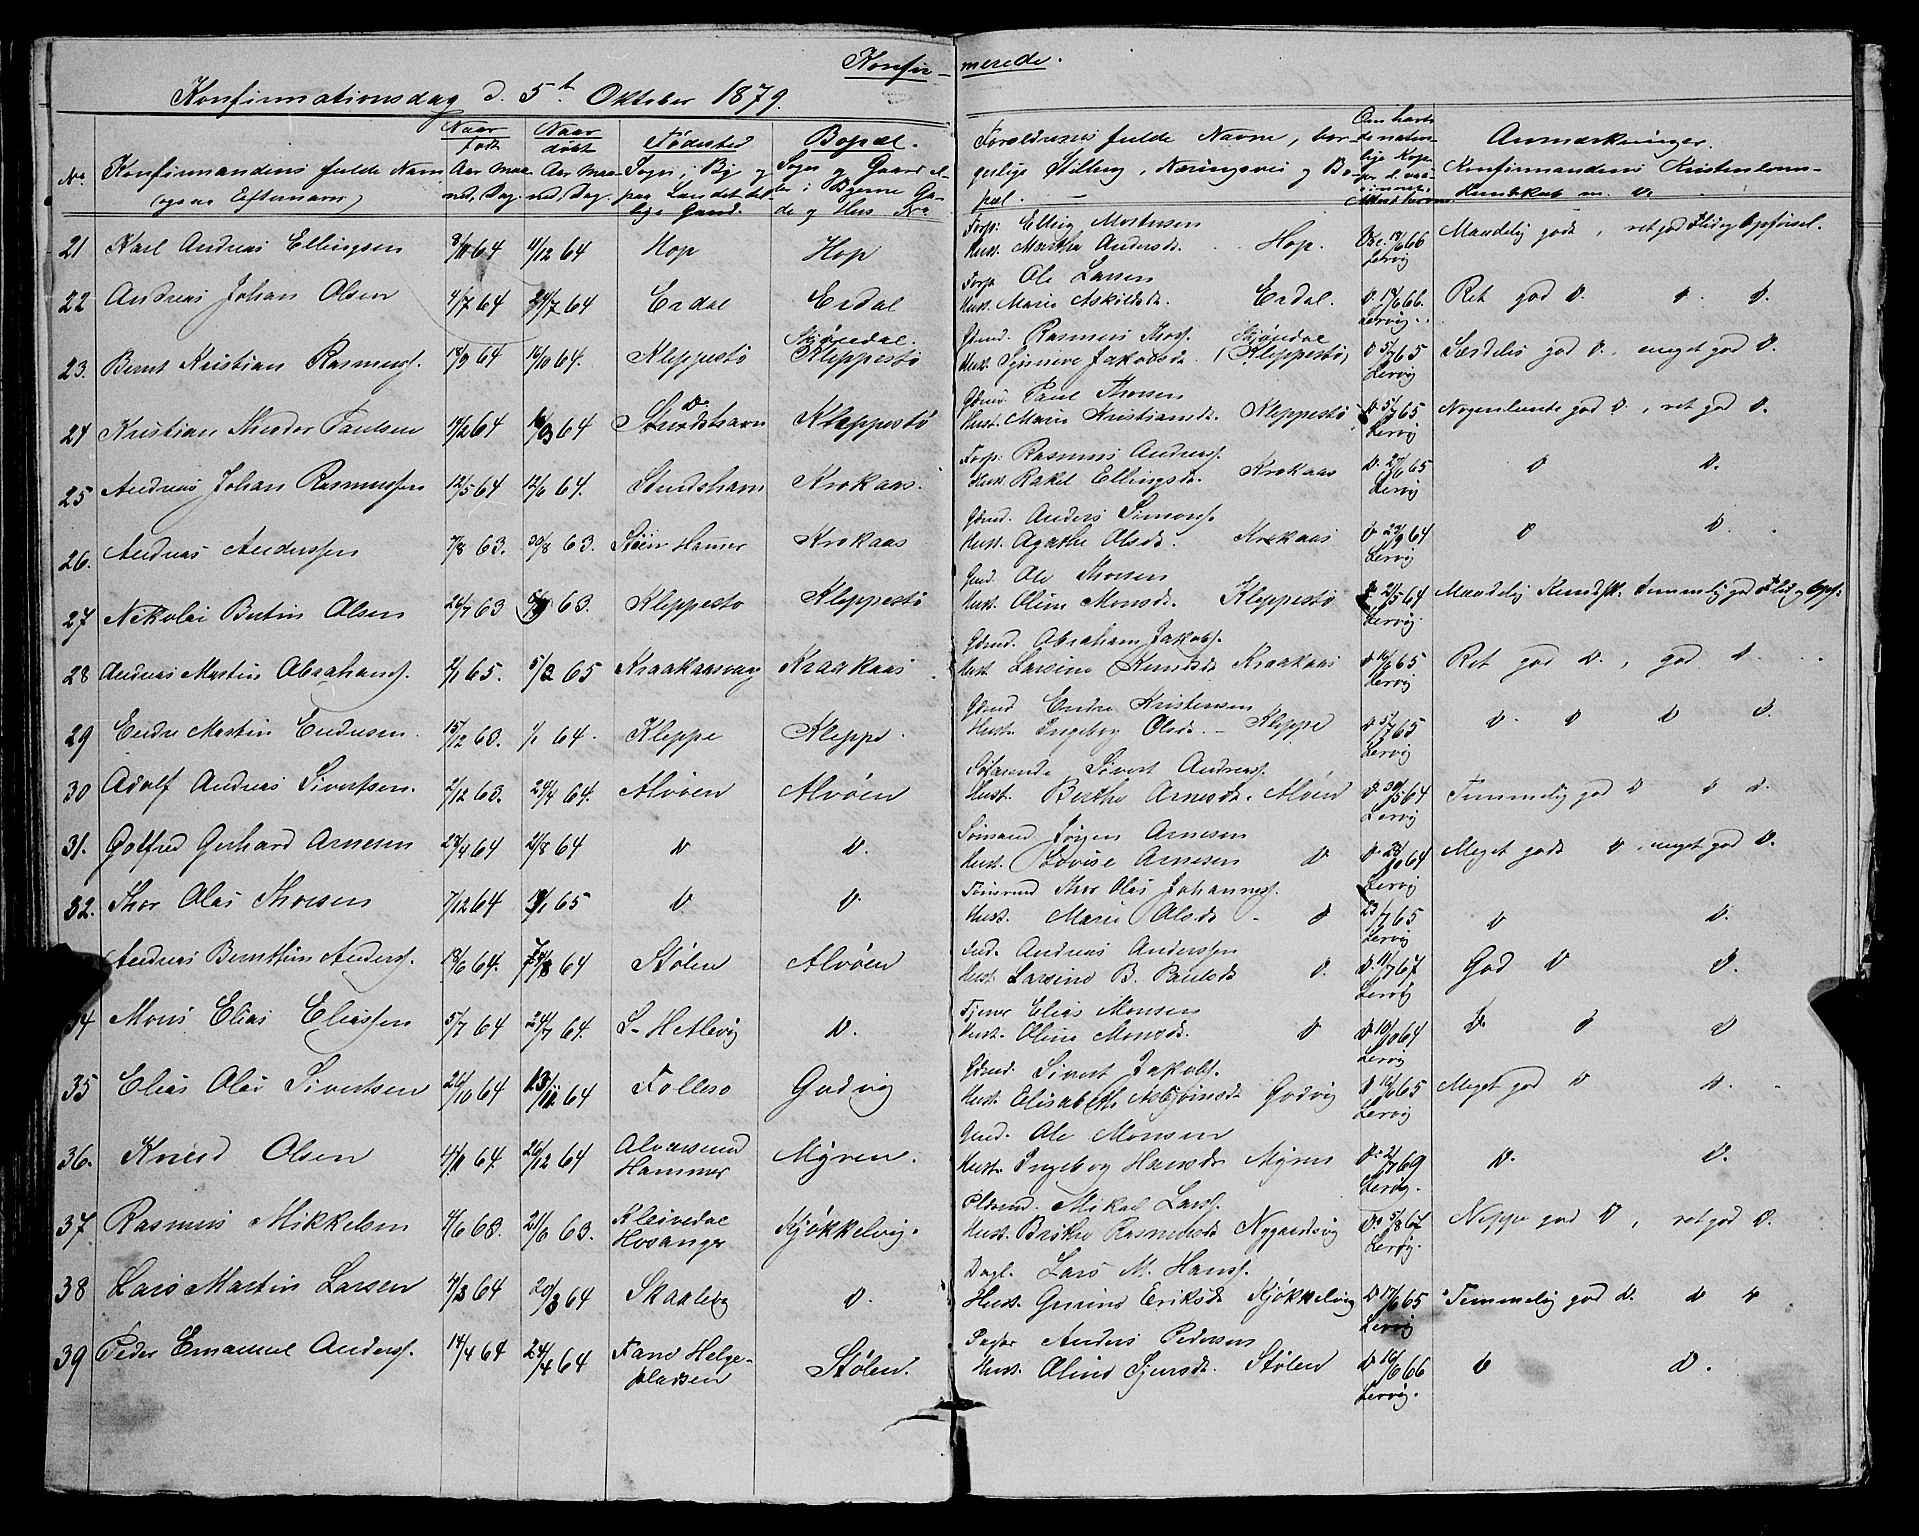 Konfir- merede.
Konfirmationsdag d. 5t Oktober 1879.
No Konfirmandens fulde Navn (ogsaa Efternavn) Naar født Aar Maaned, Dag. Naar døbt Aar Maaned, Dag. Fødested Sogn, By og paa Landet tillige Gaard. Bopæl. Sogn og Gaard eller i Byerne Gade og Hus No Forældrenes fulde Navne, borgerlige Stilling, Næringsvei og Bopæl. Anmærkninger. Konfirmandens Kristendomskundskab m. v.
21 Karl Andreas Ellingsen 8/11 64 11/12 64 Hop Hop Forp: Elling Mortensen
Hust. Marthe Andersdr. Hop. 66 Lervig Maadelig godt, ret god Flid og Opførsel.
22 Andreas Johan Olsen 4/7 64 24/7 64 Erdal Erdal Forp Ole Larsen
Hust. Marie Askildsdr. Erdal. 66. Lervig. Ret god D. D. D.
23. Bernt Kristian Rasmuss. 18/9 64 16/10 64. Kleppestø Skjøndal. Kleppestø Gdmd. Rasmus Thoss.
Hust. Synneve Jakobsdr. Skjøndal (Kleppestø) D 5/7 65 Lervig Særdeles god D., meget god D.
24 Kristian Theodor Paulsen 14/2 64 64 Strudshavn Kleppestø Gdmd. Paul Thorsen
Hust. Marie Kristiansdr. Kleppestø D 5/7 65 Lervig Nogenlunde god D., ret god D.
25 Andreas Johan Rasmussen 12/5 64 12/6 64. Strudshavn Krokaas. Forp: Rasmus Anderss.
Hust. Rakel Ellingsdr. Krokaas D. 27/6 65 Lervig D D.
26. Andreas Anderssen 7/8 63. 30/8 63. Støen Hamer Krokaas Gdmd. Anders Simons.
Hust. Agathe Olsdr. Krokaas D 29/9 64 Lervig D D.
27 Nikolai Bertin Olsen 26/7 63 63. Kleppestø Kleppestø Gmd. Ole Thorsen
Hust. Oline Monsdr. Kleppestø 21/5 64 Lervig. Maadelig Kundsk. Temmelig god Flid og Opf.
28 Andreas Martin Abrahams. 2/1 65. 5/2 65 Kraakaasvaag Kraakaas Gdmd. Abraham Jakobs.
Hust. Larsine Knudsdr Kraakaas 65 Lervig Ret god D., god D.
29 Endre Martin Endresen. 15/12 63. 1/1 64. Kleppe Kleppe. Gdmd Endre Kristensen
Hust. Ingeborg Olsdr. Kleppe D 5/7 65 Lervig D. D D D.
30 Adolf Andreas Sivertsen. 2/12 63. 24/4 64. Alvøen Alvøen Søfarende Sivert Anderss.
Hust. Berthe Arnesdr. Alvøen D. 30/5 64 Lervig Temmelig god D D D.
31. Gotfred Gerhard Arnesen 28/4 64 21/8 64 D D. Sømand Jørgen Arnesen
Hust. Lovise Arnesen D 64 Lervig Meget godt D, meget god D.
32. Thor Olai Thorsen 7/12 64 65 D D. Thor Olai Johanness.
Hust. Marie Olsdr D 23/7 65 Lervig D D.
Andreas Bernthin Anders. 18/6 64. 64 Stølen Alvøen Ind. Andreas Anderssen
Hust. Larsine B. Paulsdr D. D. 11/7 67 Lervig God D D.
34 Mons Elias Eliassen 5/7 64 24/7 64. S- Hetlevig D. Tjener Elias Monsen
Hust. Oline Monsdr. D D 10/10 64 Lervig D. D D
35 Elias Olai Sivertsen 26/10 64 64 Follesø Godvig Gdmd. Sivert Jakobs.
Hust. Elisabeth Asbjørnsdr Godvig D 65 Lervig Meget god D D.
36. Knud Olsen 64. 26/12 64 Alversund Hammer Myren. Gmd. Ole Monsen
Hust. Ingeborg Hansdr Myren D. 2/7 69 Lervig. D. D.
37. Rasmus Mikkelsen 4/6 63. 21/6 63. Kleivedal Hosanger Kjøkkelvig. Mikal Larss.
Hust. Brithe Rasmusdr Nygaardsvig Do 5/8 67 Lervig. Neppe god D, ret god D.
38 Lars Martin Larsen 4/3 64 20/3 64 Skaalevig D. Dagl. Lars M. Hanss.
Hust. Gurine Eriksdr Kjøkkelvig D 17/6 65 Lervig Temmelig god D. D D
39 Peder Emanuel Anderss. 14/4 64 24/4 64 Fane Helgepladsen Stølen. Anders Pedersen
Hust. Oline Sjursdr. Stølen D 16/6 66 Lervig. D D.